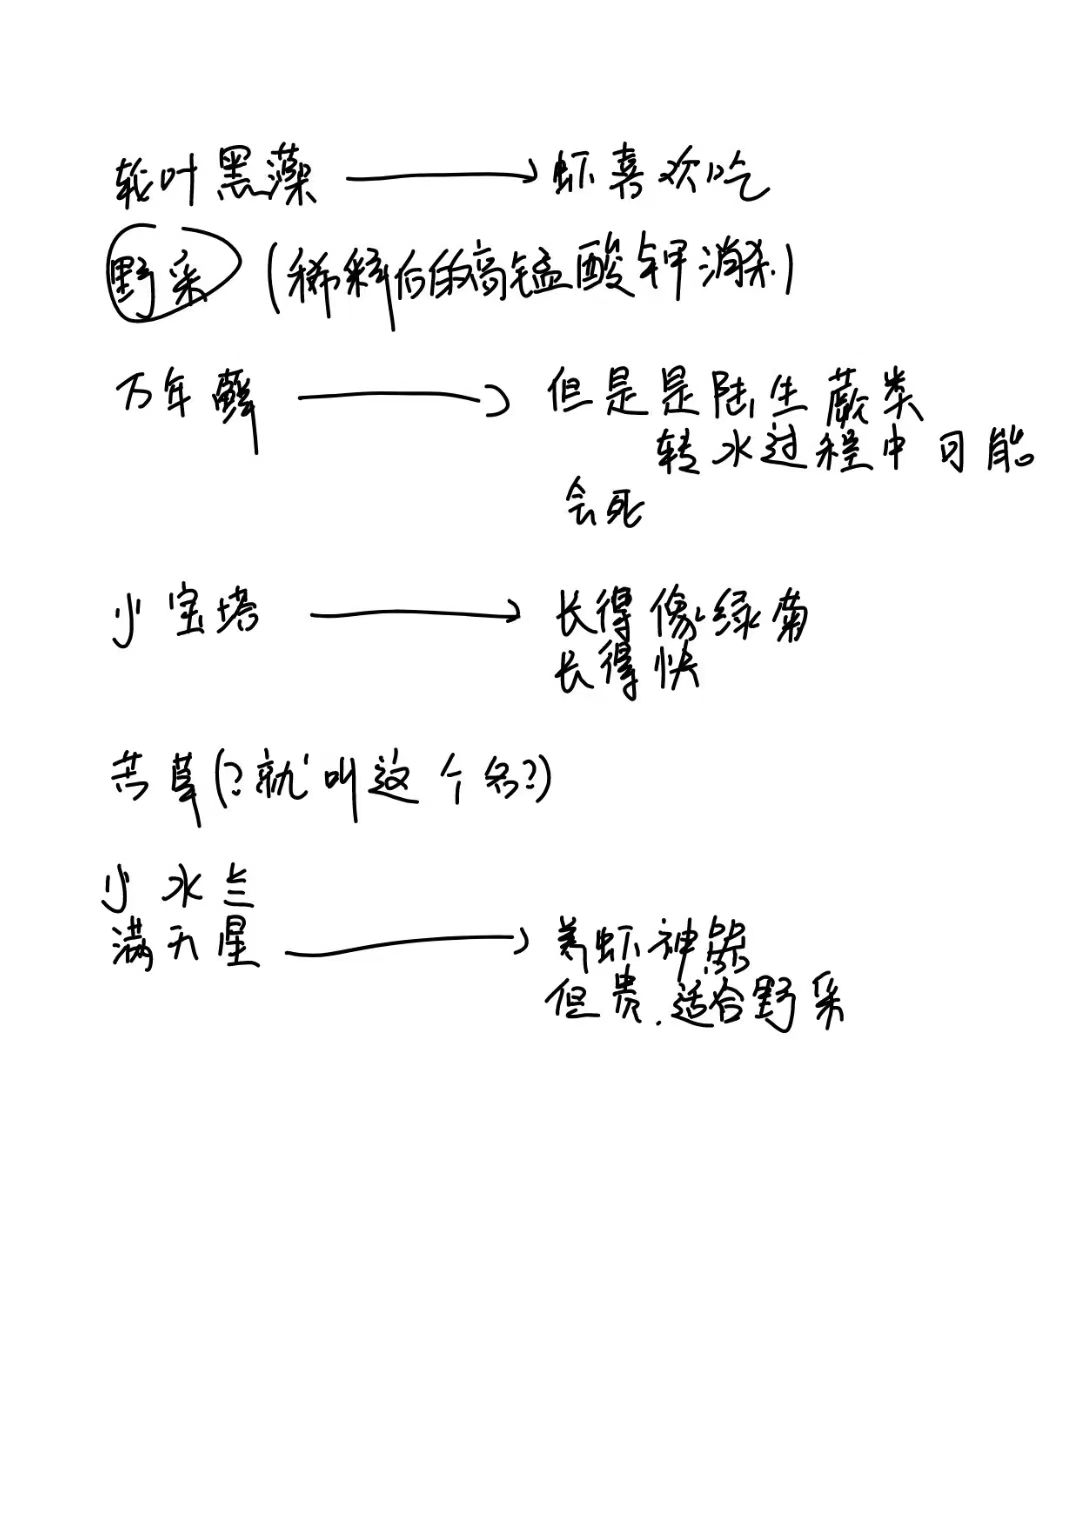 轮叶黑藻 → 虾喜欢吃
野采 (稀释后的高锰酸钾消杀)
万年藓 → 但是是陆生蕨类
转水过程中可能
会死
小宝塔 → 长得像绿菊
长得快
苦草(?就叫这个名?)
小水兰
满天星 → 养虾神器
但贵.适合野采